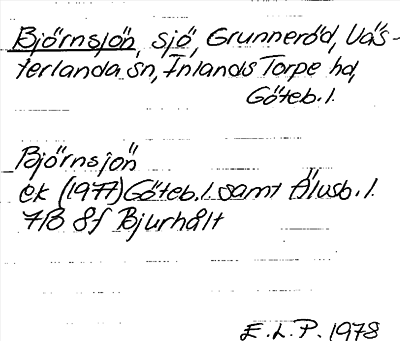 Björnsjön, sjö, Grunneröd, Väs-
terlanda sn, Inlands Torpe hd,
Göteb.l.
Björnsjön
ek (1977) Göteb.l. samt Älvsb.l.
7B 8f Bjurhålt
E.L.P. 1978